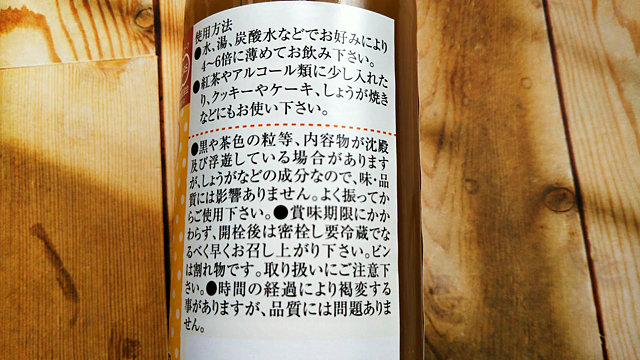 使用方法
●水、湯、炭酸水などでお好みにより
4～6倍に薄めてお飲み下さい。
●紅茶やアルコール類に少し入れた
り、クッキーやケーキ、しょうが焼き
などにもお使い下さい。
●黒や茶色の粒等、内容物が沈殿
及び浮遊している場合があります
が、しょうがなどの成分なので、味・品
質には影響ありません。よく振ってか
らご使用下さい。●賞味期限にかか
わらず、開栓後は密栓し要冷蔵でな
るべく早くお召し上がり下さい。ビン
は割れ物です。取り扱いにご注意下
さい。●時間の経過により褐変する
事がありますが、品質には問題ありま
せん。